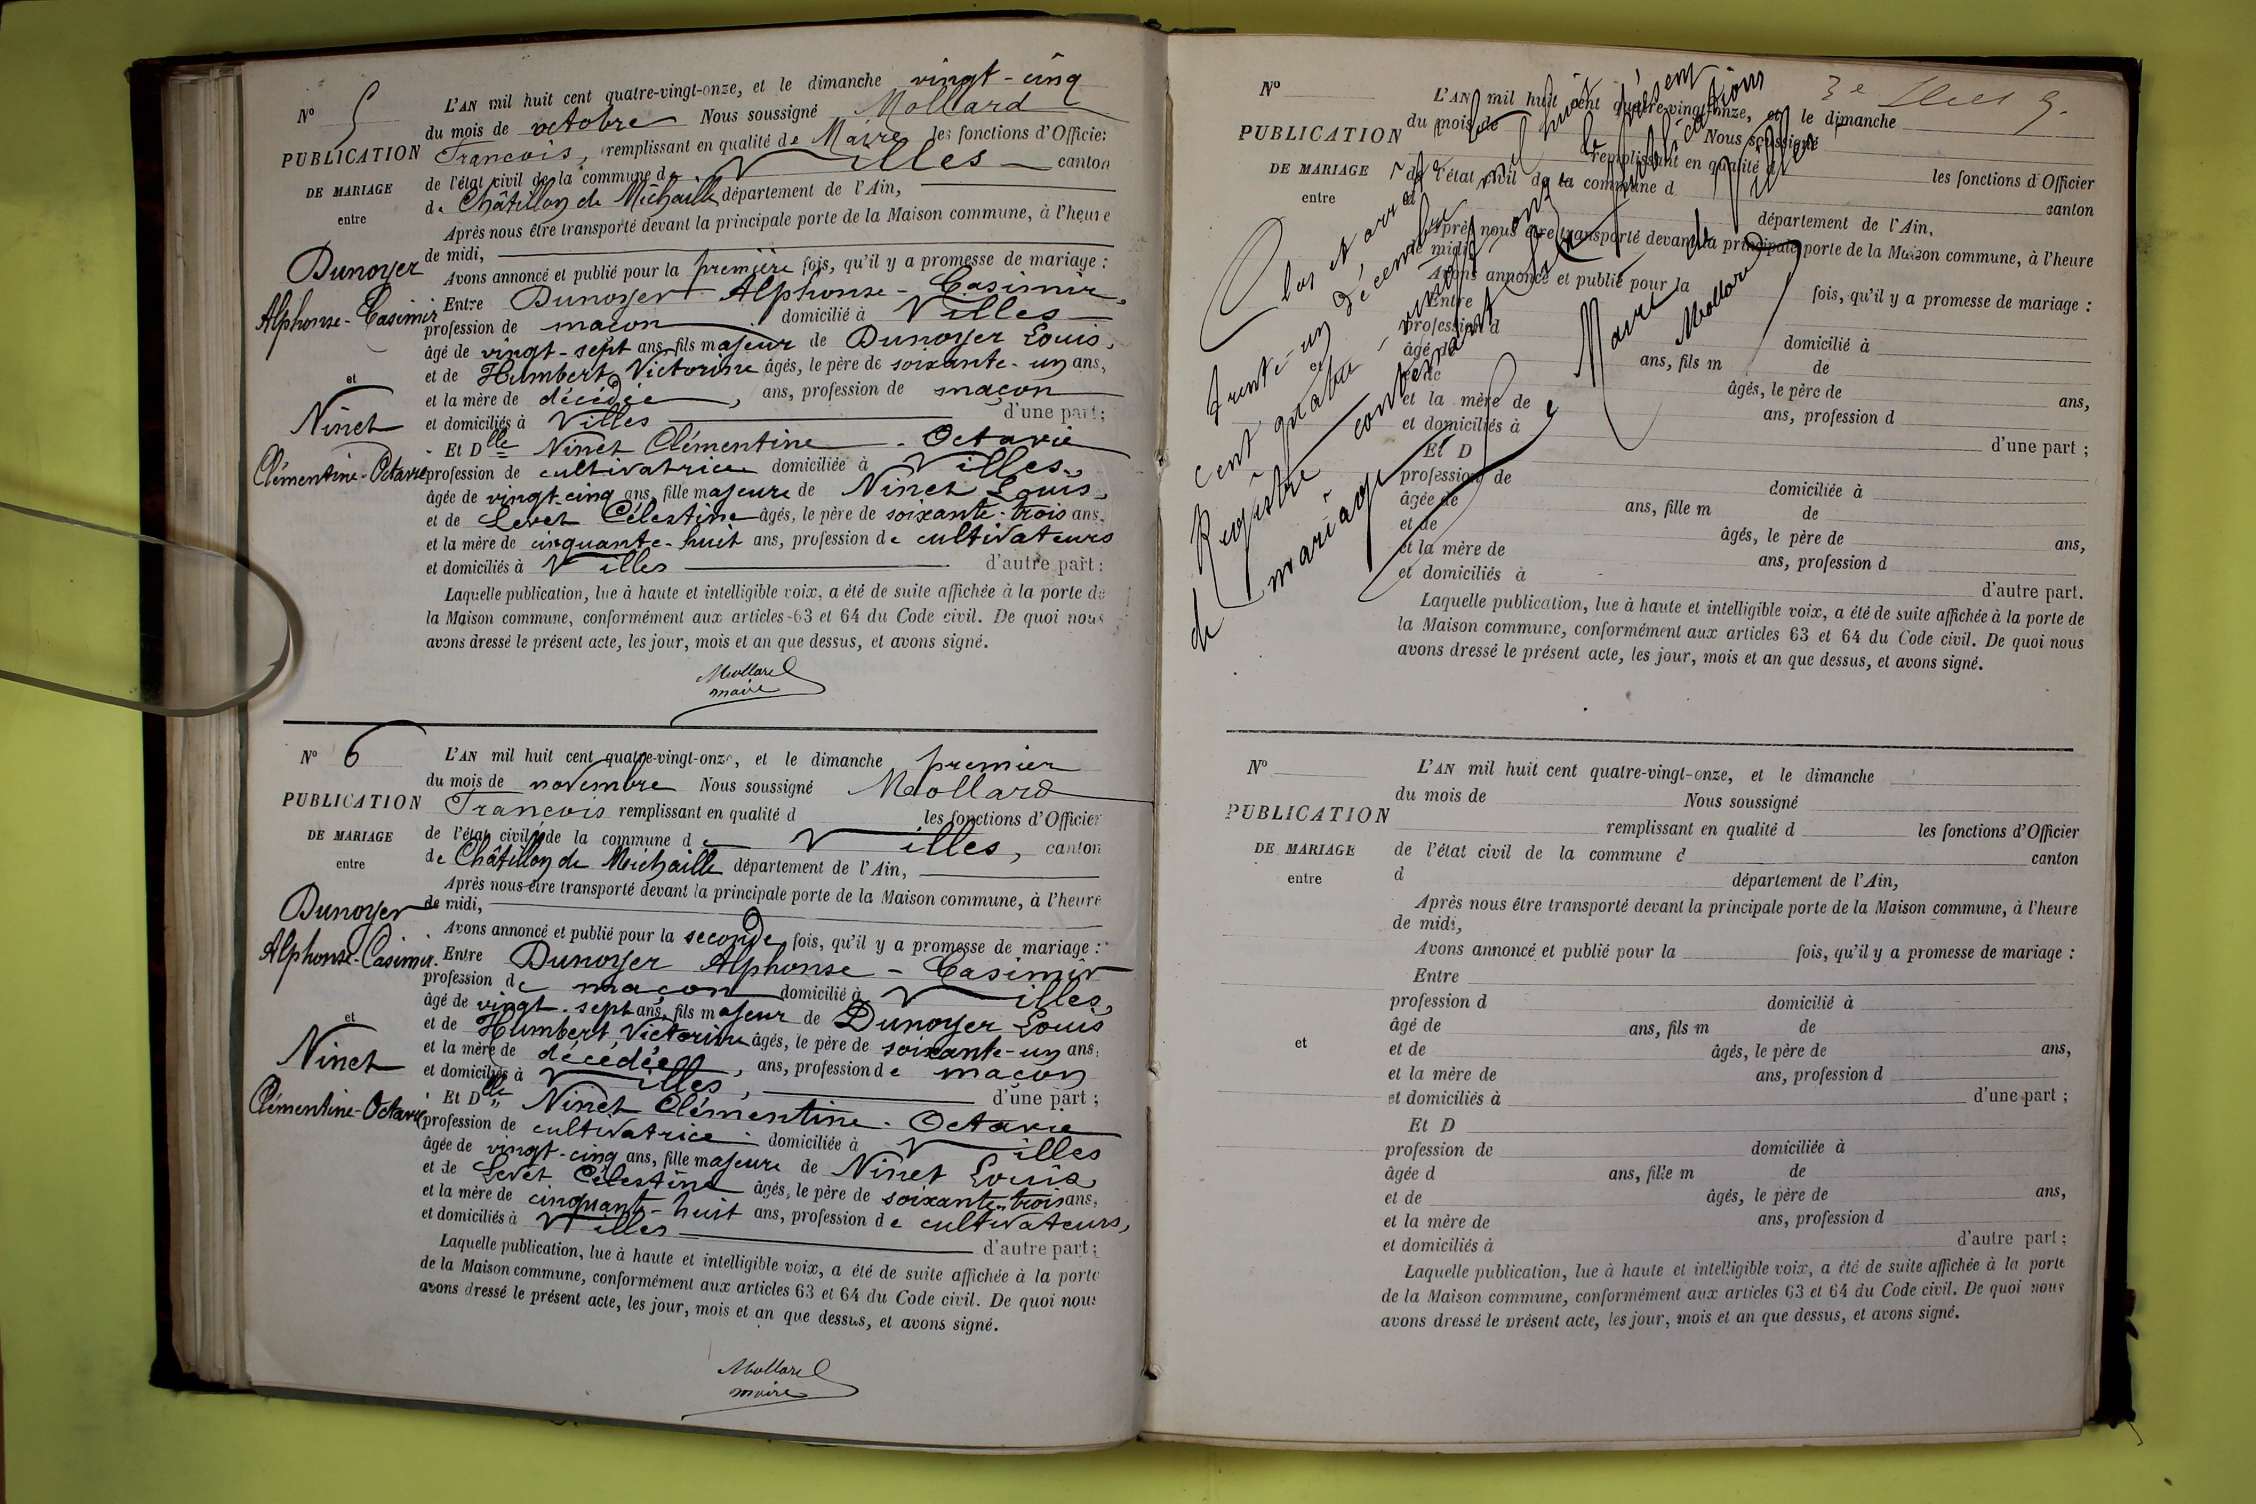 N° 5
PUBLICATION
DE MARIAGE
entre
Dunoyer
Alphonse-Casimir
et
Ninet
Clémentine-Octavie
L'AN mil huit cent quatre-vingt-onze, et le dimanche vingt-cinq
du mois de octobre Nous soussigné Mollard
François, remplissant en qualité de Maire les fonctions d'Officier
de l'état civil de la commune de Villes canton
de Châtillon de Michaille département de l'Ain,
Après nous être transporté devant la principale porte de la Maison commune, à l'heure
de midi,
Avons annoncé et publié pour la première fois, qu'il y a promesse de mariage :
Entre Dunoyer Alphonse-Casimir,
profession de maçon domicilié à Villes
âgé de vingt-sept ans, fils majeur de Dunoyer Louis,
et de Humbert Victorine âgés, le père de soixante-un ans,
et la mère de décédée, ans, profession de maçon
et domiciliés à Villes d'une part ;
Et Dlle Ninet Clémentine-Octavie
profession de cultivatrice domiciliée à Villes,
âgée de vingt-cinq ans, fille majeure de Ninet Louis,
et de Levet Célestine âgés, le père de soixante-trois ans,
et la mère de cinquante-huit ans, profession de cultivateurs
et domiciliés à Villes d'autre part :
Laquelle publication, lue à haute et intelligible voix, a été de suite affichée à la porte de
la Maison commune, conformément aux articles 63 et 64 du Code civil. De quoi nous
avons dressé le présent acte, les jour, mois et an que dessus, et avons signé.
Mollard
maire
N° 6
PUBLICATION
DE MARIAGE
entre
Dunoyer
Alphonse-Casimir.
et
Ninet
Clémentine-Octavie
L'AN mil huit cent quatre-vingt-onze, et le dimanche premier
du mois de novembre Nous soussigné Mollard
François remplissant en qualité d les fonctions d'Officier
de l'état civil de la commune de Villes, canton
de Châtillon de Michaille département de l'Ain,
Après nous être transporté devant la principale porte de la Maison commune, à l'heure
de midi,
Avons annoncé et publié pour la seconde fois, qu'il y a promesse de mariage :
Entre Dunoyer Alphonse-Casimir
profession de maçon domicilié à Villes,
âgé de vingt-sept ans, fils majeur de Dunoyer Louis
et de Humbert Victorine âgés, le père de soixante-un ans,
et la mère de décédée, ans, profession de maçon
et domiciliés à Villes, d'une part ;
Et Dlle Ninet Clémentine-Octavie
profession de cultivatrice domiciliée à Villes
âgée de vingt-cinq ans, fille majeure de Ninet Louis
et de Levet Célestine âgés, le père de soixante-trois ans,
et la mère de cinquante-huit ans, profession de cultivateurs,
et domiciliés à Villes d'autre part ;
Laquelle publication, lue à haute et intelligible voix, a été de suite affichée à la porte
de la Maison commune, conformément aux articles 63 et 64 du Code civil. De quoi nous
avons dressé le présent acte, les jour, mois et an que dessus, et avons signé.
Mollard
maire
3e
N°
PUBLICATION
DE MARIAGE
entre
L'AN mil huit cent quatre-vingt-onze, et le dimanche
du mois de Nous soussigné
remplissant en qualité d les fonctions d'Officier
de l'état civil de la commune d canton
d département de l'Ain,
Après nous être transporté devant la principale porte de la Maison commune, à l'heure
de midi,
Avons annoncé et publié pour la fois, qu'il y a promesse de mariage :
Entre
profession d domicilié à
âgé de ans, fils m de
et de âgés, le père de ans,
et la mère de ans, profession d
et domiciliés à d'une part ;
Et D
profession de domiciliée à
âgée de ans, fille m de
et de âgés, le père de ans,
et la mère de ans, profession d
et domiciliés à d'autre part.
Laquelle publication, lue à haute et intelligible voix, a été de suite affichée à la porte de
la Maison commune, conformément aux articles 63 et 64 du Code civil. De quoi nous
avons dressé le présent acte, les jour, mois et an que dessus, et avons signé.
Clos et arrêté le
trente-un Décembre mil huit
cent quatre-vingt-onze le présent
Registre contenant six publications
de mariage
Maire de Villes
Mollard
N°
PUBLICATION
DE MARIAGE
entre
et
L'AN mil huit cent quatre-vingt-onze, et le dimanche
du mois de Nous soussigné
remplissant en qualité d les fonctions d'Officier
de l'état civil de la commune d canton
d département de l'Ain,
Après nous être transporté devant la principale porte de la Maison commune, à l'heure
de midi,
Avons annoncé et publié pour la fois, qu'il y a promesse de mariage :
Entre
profession d domicilié à
âgé de ans, fils m de
et de âgés, le père de ans,
et la mère de ans, profession d
et domiciliés à d'une part ;
Et D
profession de domiciliée à
âgée d ans, fille m de
et de âgés, le père de ans,
et la mère de ans, profession d
et domiciliés à d'autre part ;
Laquelle publication, lue à haute et intelligible voix, a été de suite affichée à la porte
de la Maison commune, conformément aux articles 63 et 64 du Code civil. De quoi nous
avons dressé le présent acte, les jour, mois et an que dessus, et avons signé.